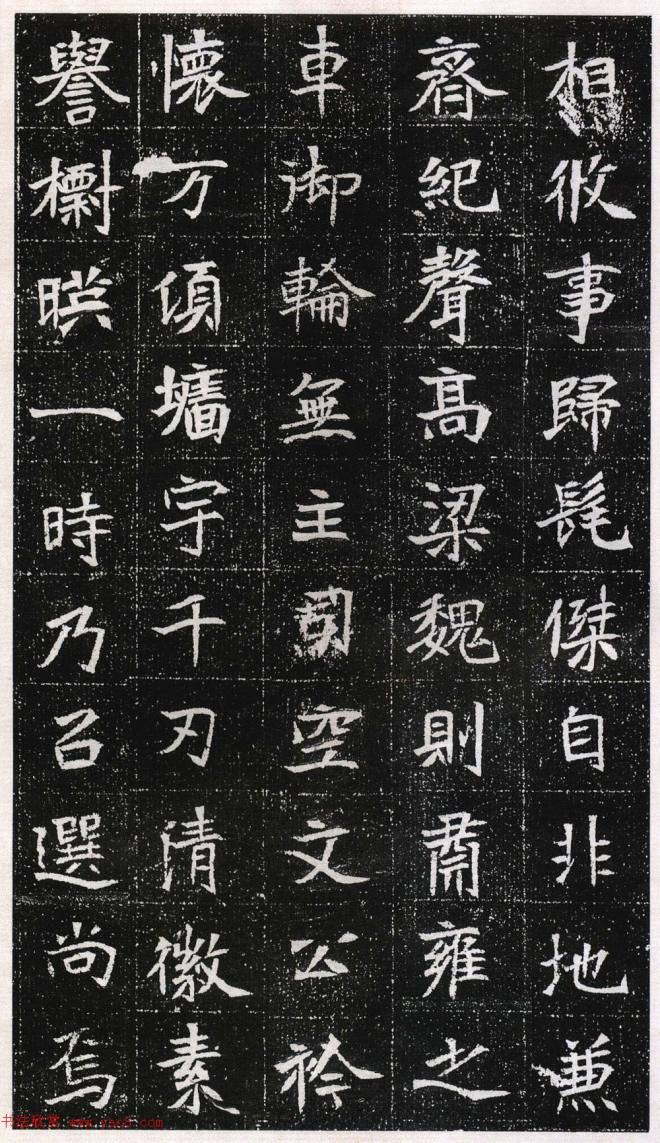 相攸事歸髦傑自非地兼
齊紀聲高梁魏則肅雍之
車御輪無主司空文公衿
懷万頃墻宇千刃清徽素
譽檦暎一時乃召選尚焉
书法欣赏 www.yac8.com